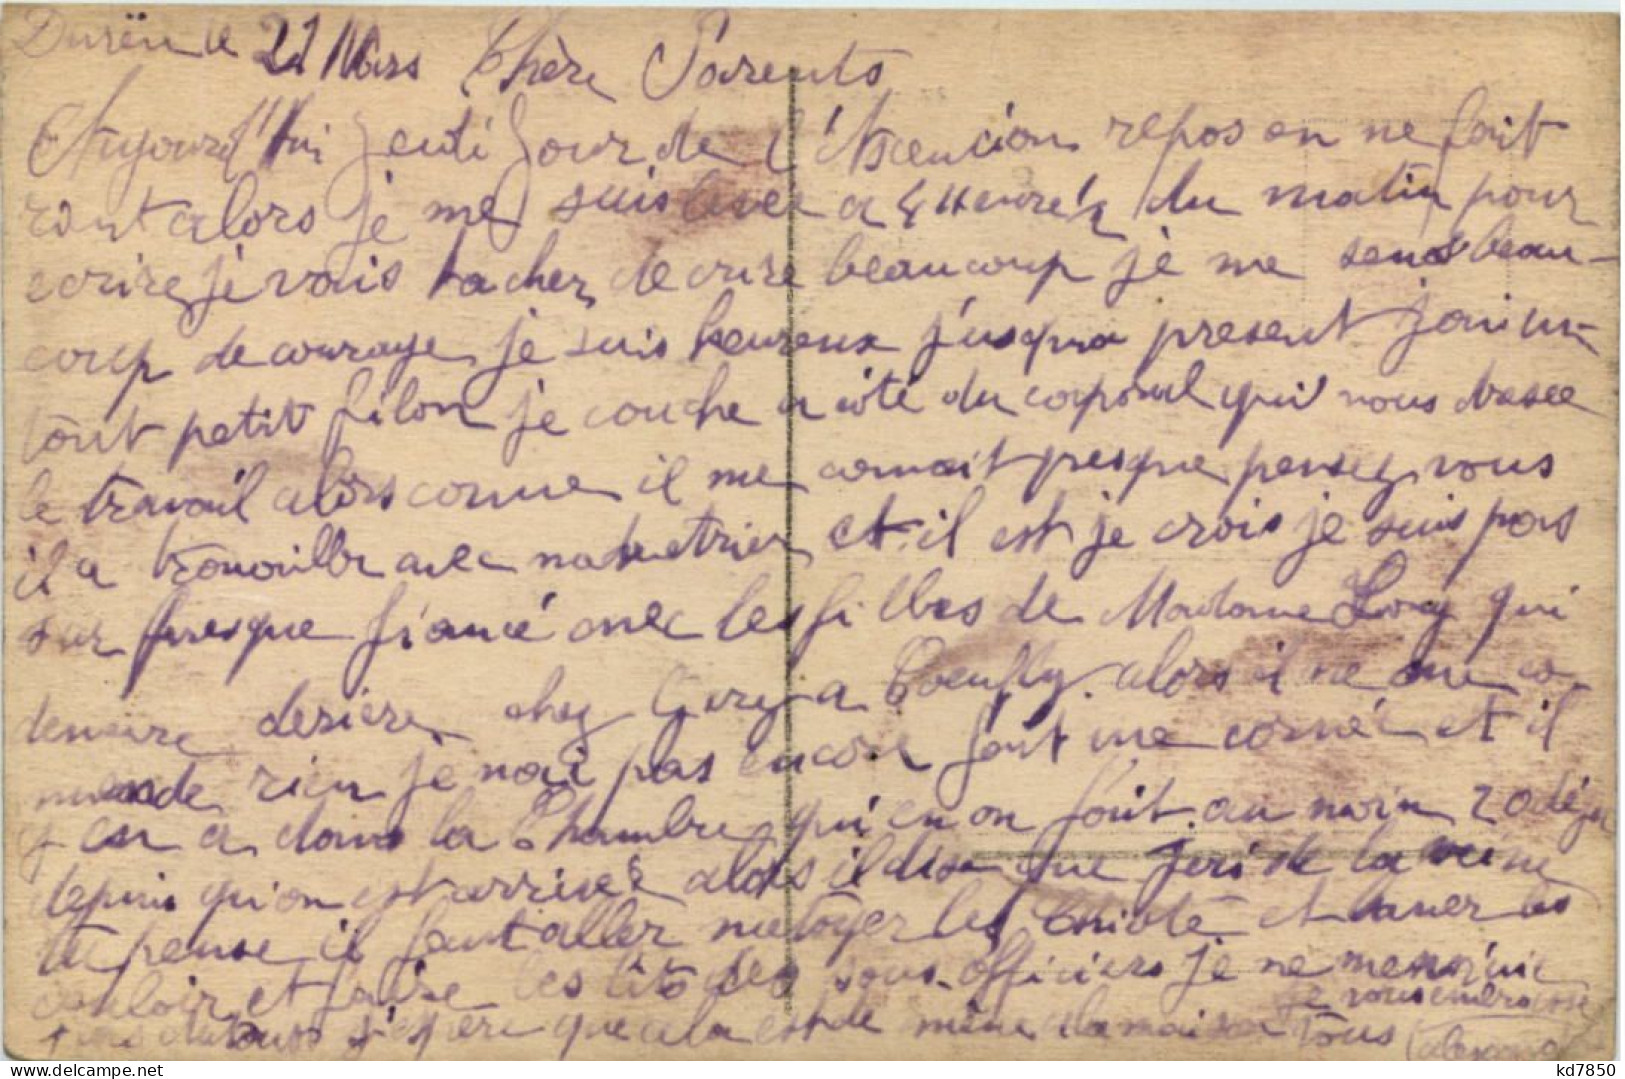 Durën le 21 Mars Chère Parents
Aujourd'hui Jeudi Jour de l'Ascencion repos on ne fait
rient alors je me suis lever a 4 Heure ½ du matin pour
ecrire je vais tacher decrire beaucoup je me sens beau-
coup de courage je suis heureux jusqua present jai un
tout petit filon je couche a coté du caporal qui nous drese
le travail alors comme il me connait presque pensez vous
il a travailler avec et il est je crois je suis pas
sur presque fiancé avec les filles de Madame Lory qui
demeure deriere chez Gerey a Coeuffy alors il ne me co
mande rien je nai pas encore fait une corvé et il
y en a dans la Chambre qui en on fait au moin 20 déja
depuis qu'on est arrivée alors il dise que jeri de la veine
tu pense il faut aller netoyer les et laver les
couloir et faire les lits des sous-officiers je ne
pas du tous j'espère que cela est de même a la maison je vous embrasse
tous
kd7850